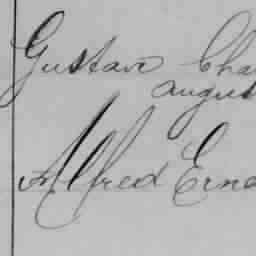 Gustav Cha
august
Alfred Erne